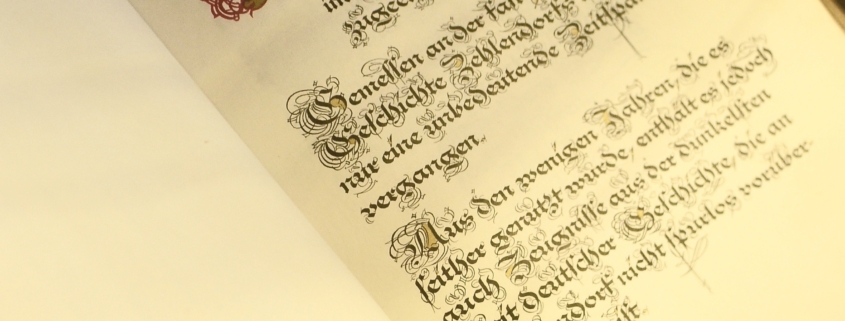 zugeda
Gemessen an der
Geschichte Zehlendorfs
nur eine unbedeutende Zeitspa
vergangen.
Aus den wenigen Jahren, die es
seither genutzt wurde, enthält es jedoch
auch Zeugnisse aus der dunkelsten
eit deutscher Geschichte, die an
ndorf nicht spurlos vorüber
ist.